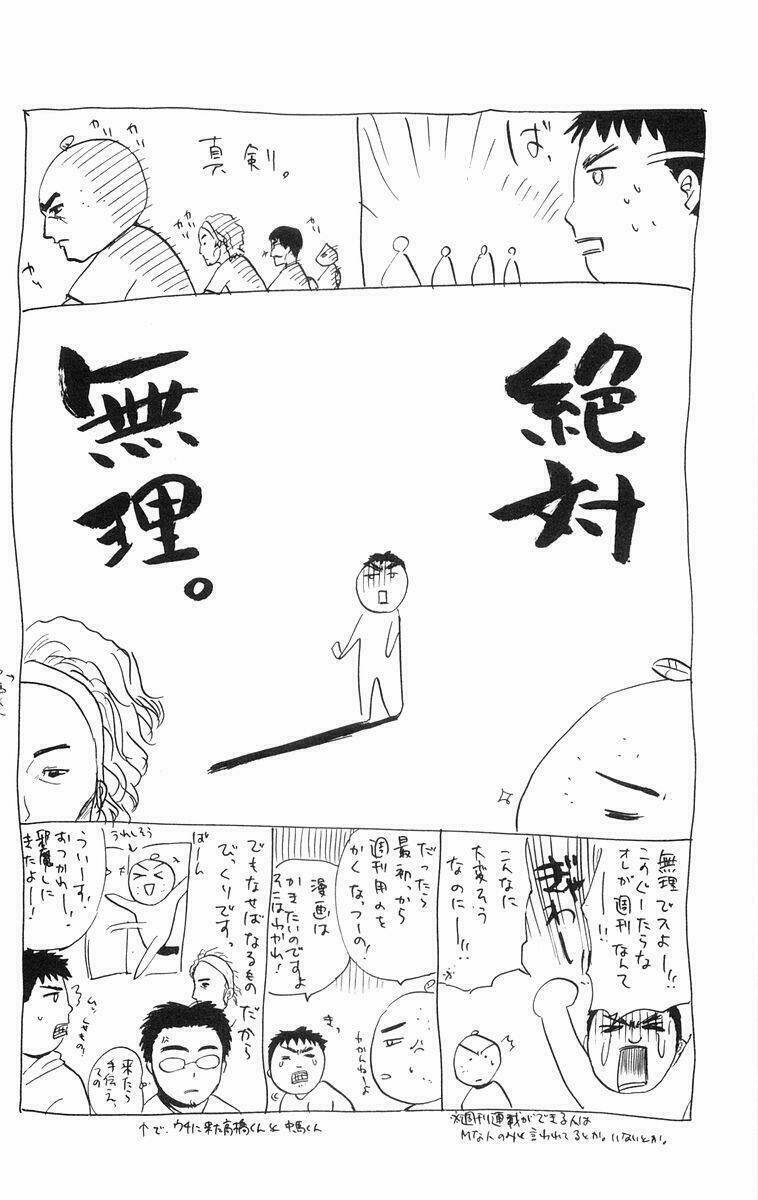 ば、
真剣。
ガリ
ガリ
ガリ
ガリ
絶対
無理。
無理でスよー!!
このぐーたらな
オレが週刊なんて
ーー!!
ぎゃわー
こんなに
大変そう
なのにー!!
だったら
最初っから
週刊用のを
かくなっつーの!
漫画は
かきたいのですよ
そこはわかれ!
きっ
わかんねーよ
でもなせばなるもの だから
びっくりですっ
ばーん
うれしそう
ういーす!
おつかれー!
邪魔しに
きたよー!
来たら
手伝え、
っての
※週刊連載ができる人は
Mな人のみと言われてるとか。いないとか。
↑で、ウチに来た高橋くんと中馬くん